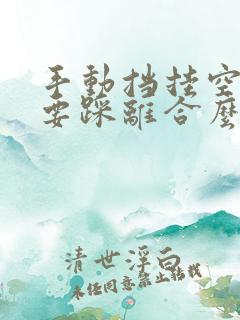 手動挡挂空
要踩離合麽
清世浮白
未经同意禁止转载